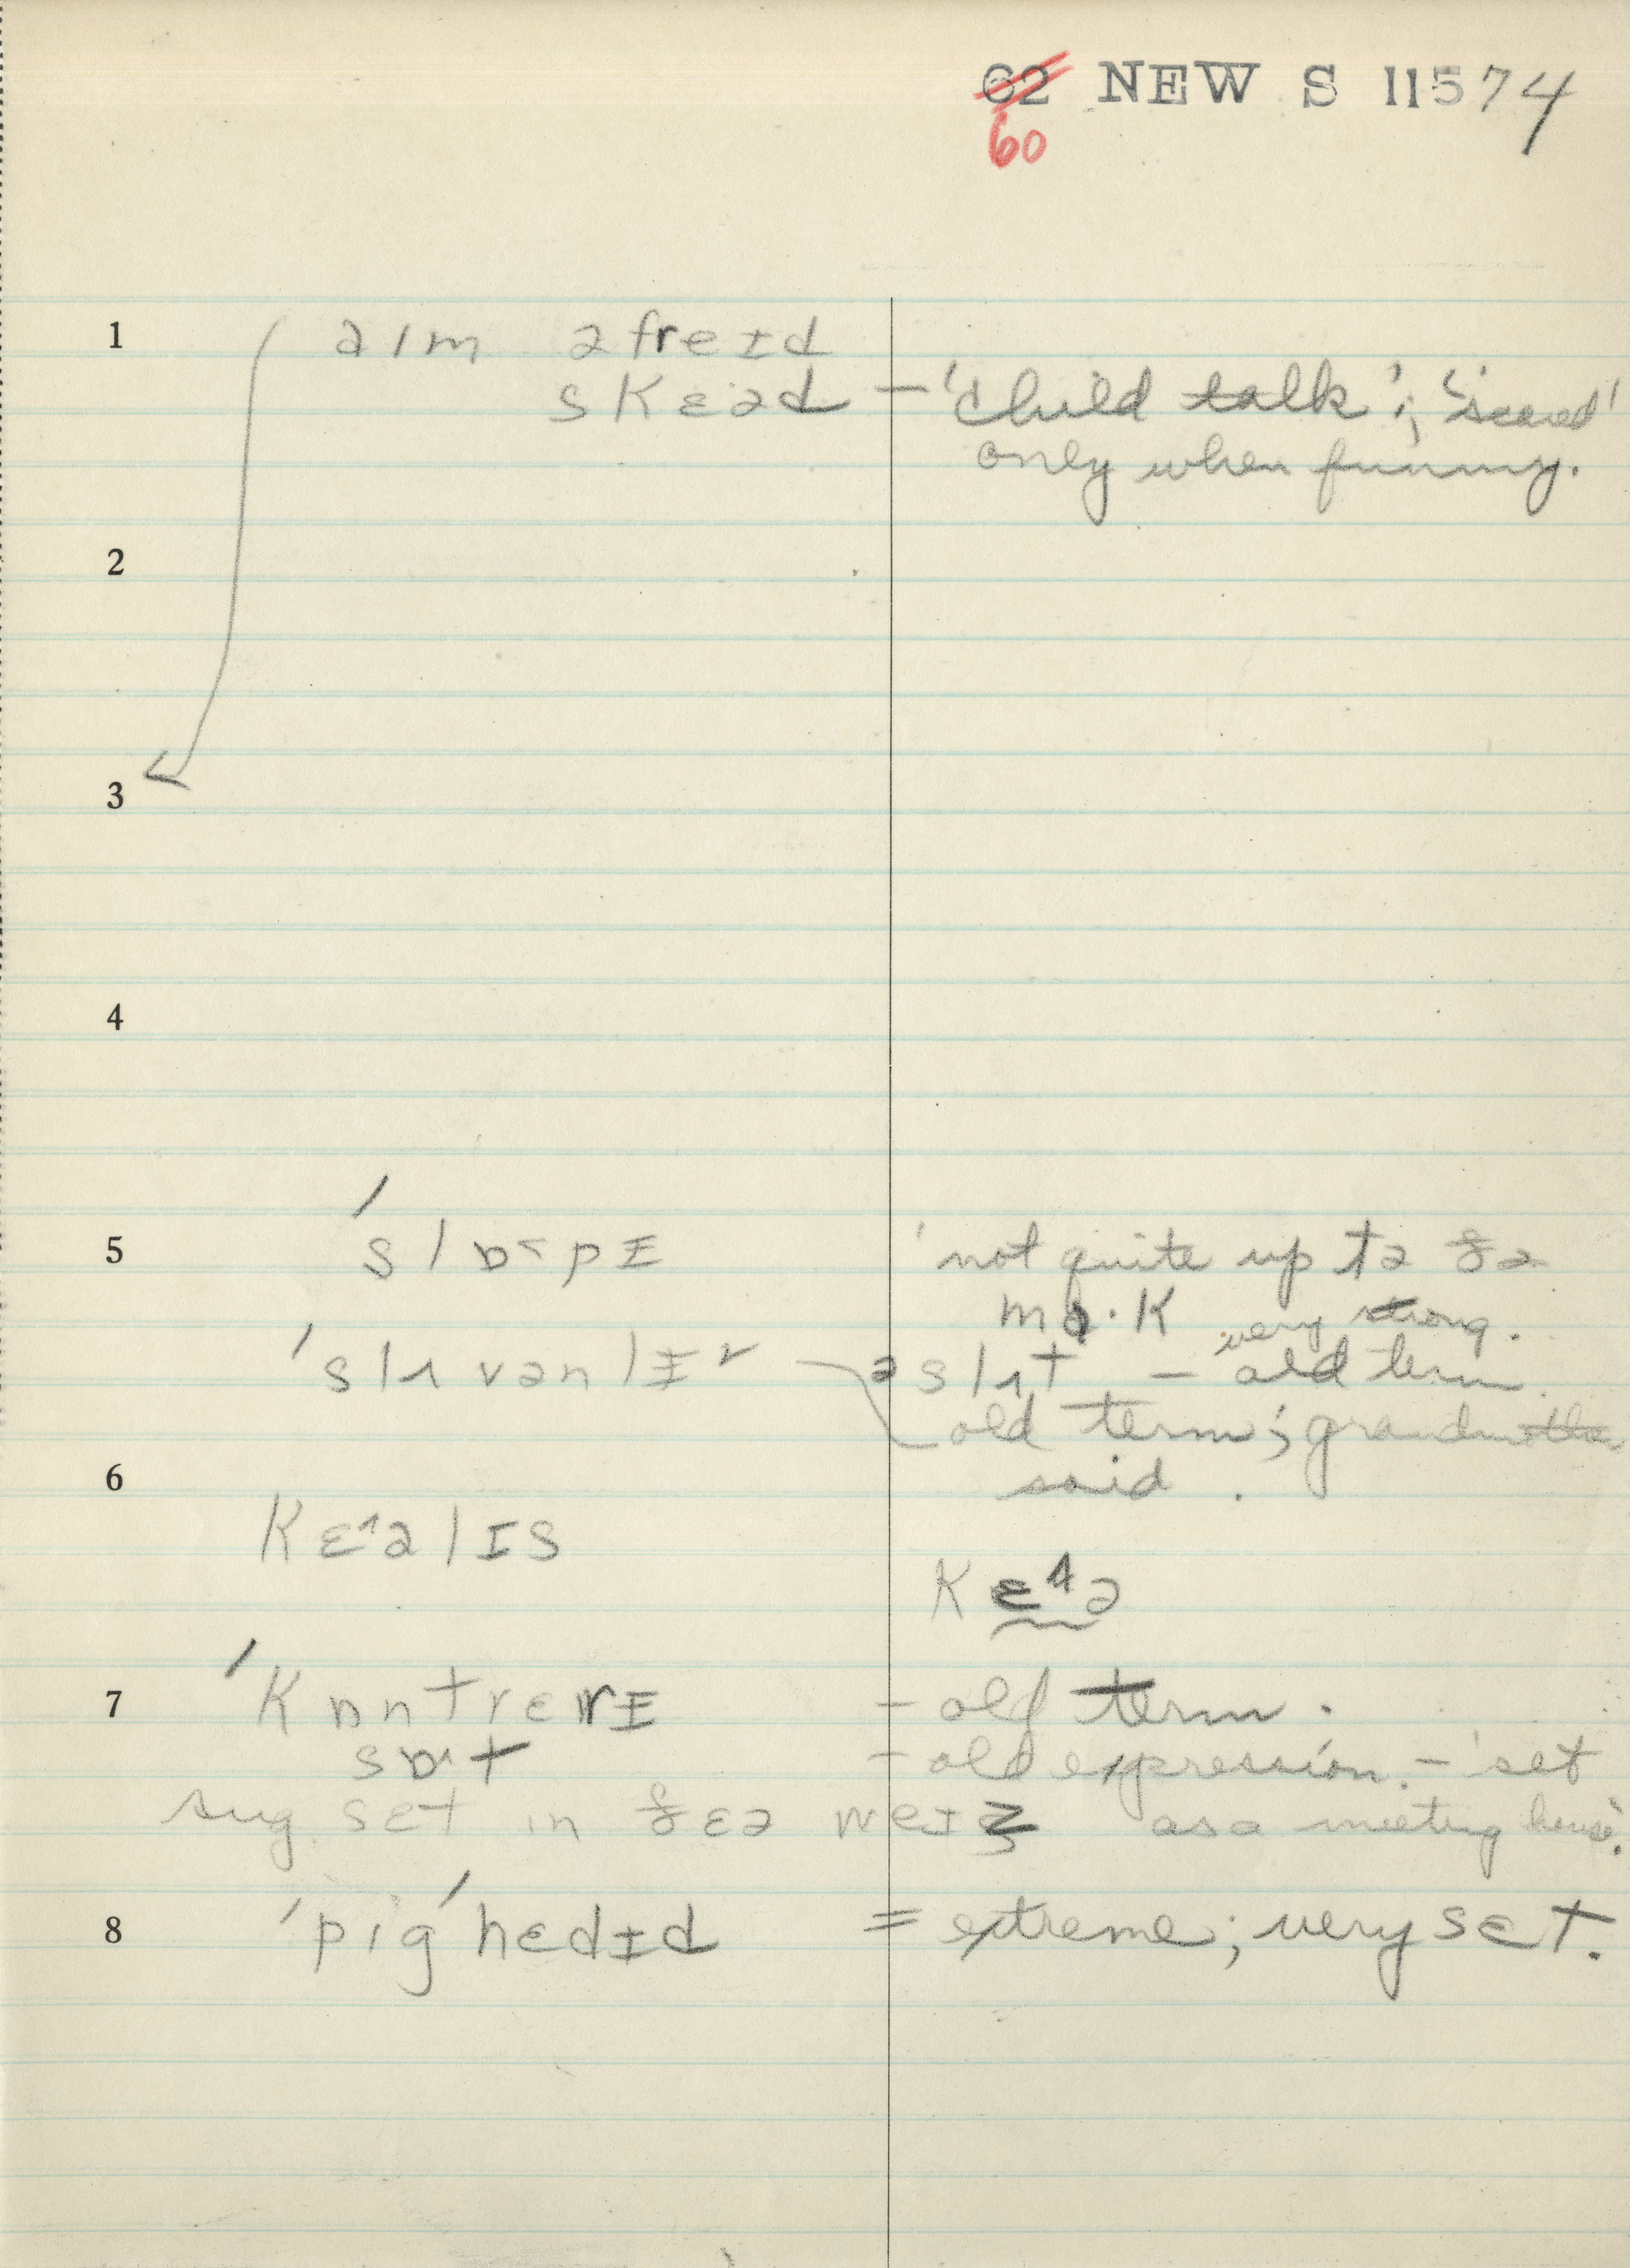 62 NEW S 11574
60
1 aɪm əfreɪd
skɛəd – 'child talk'; 'scared'
only when funny.
2
3
4
5 'slɒ˂pɪ 'not quite up tə ðə
mɑ·k very strong.
'slʌvənlɪ˅ əslʌt – old term.
old term; grandmother
6 said.
kɛ˄əlɪs
kɛ˄ə
7 'kɒntrɛrɪ – old term.
sɒ˄t – old expression. – 'set
sug. sɛt in ðɛə weɪz as a meeting house'.
8 'pig'hɛdɪd = extreme; very sɛt.